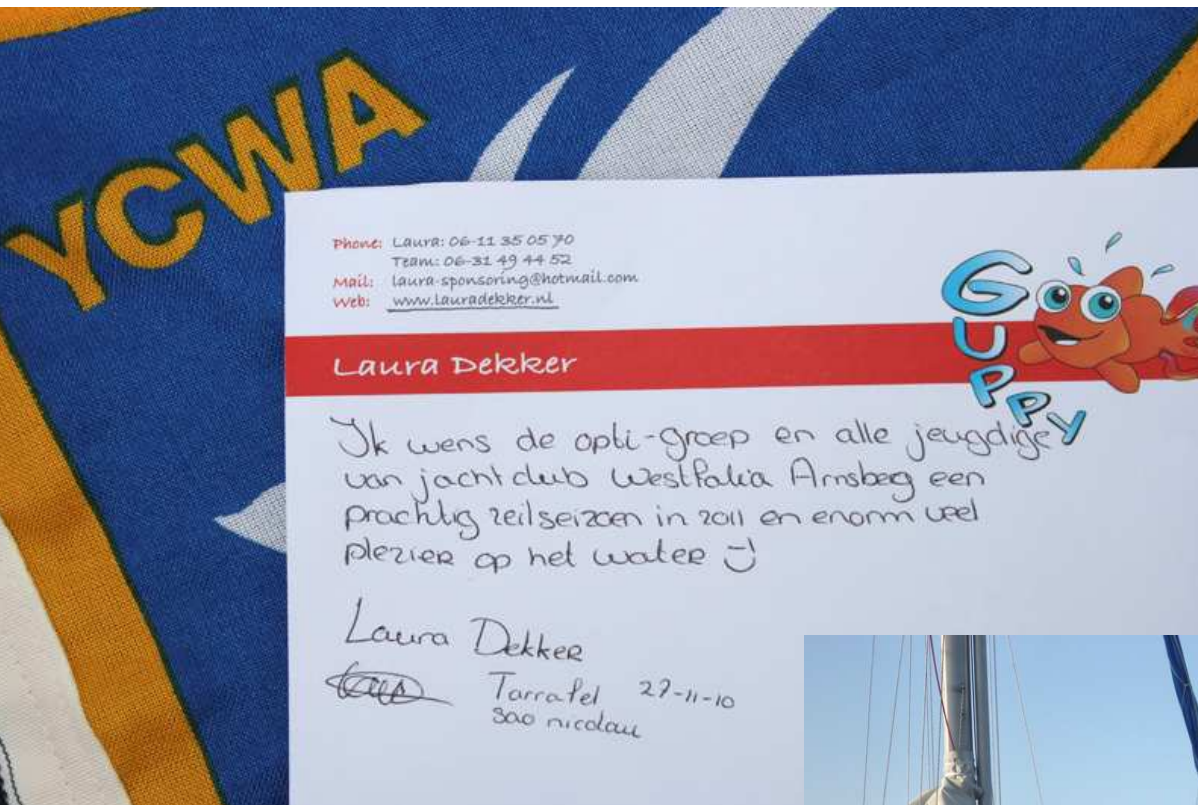 YCWA
Phone: Laura: 06-11 35 05 70
Team: 06-31 49 44 52
Mail: laura-sponsoring@hotmail.com
Web: www.lauradekker.nl
GUPPY
Laura Dekker
Ik wens de opti-groep en alle jeugdige
van jachtclub Westfalia Arnsberg een
prachtig zeilseizoen in 2011 en enorm veel
plezier op het water :-)
Laura Dekker
Tarrafel 27-11-10
Sao nicolau